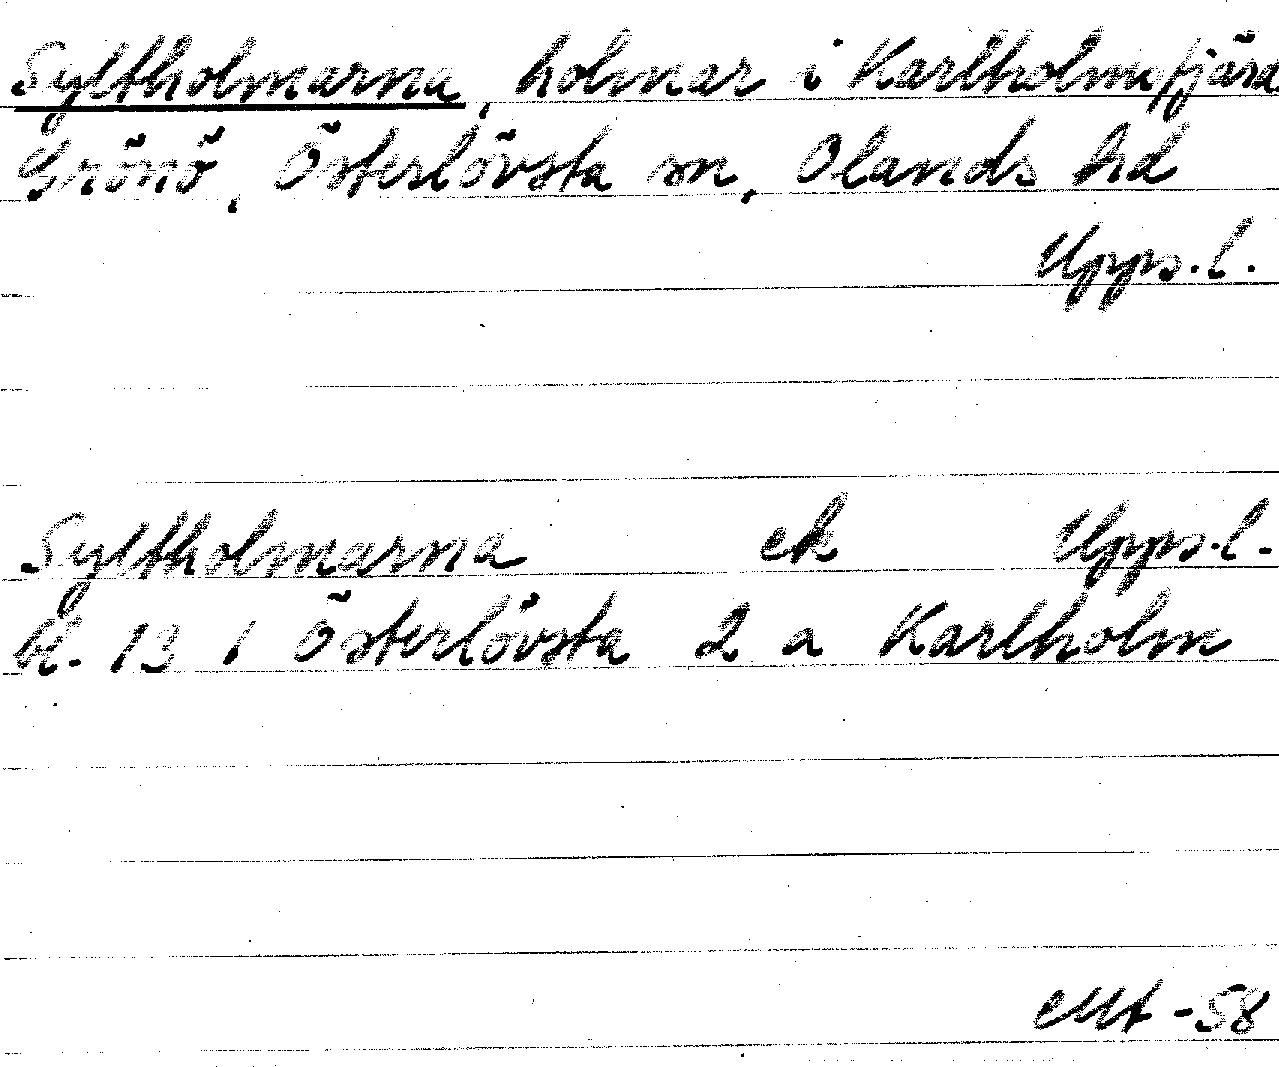 Syltholmarna, holmar i Karlholmsfjärd
Grönö, Österlövsta sn, Olands hd
Upps.l.
Syltholmarna ek Upps.l.
bl. 13 1 Österlövsta 2 a Karlholm
-58